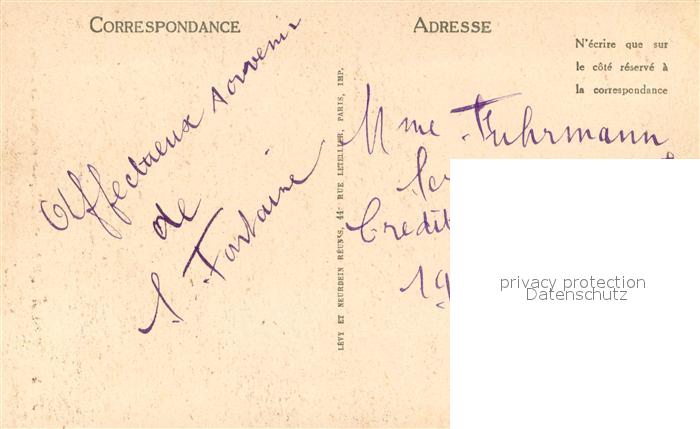 CORRESPONDANCE
Affectueux souvenir
de
S. Fontaine
LÉVY ET NEURDEIN RÉUNIS, 44 RUE LETELLIER, PARIS, IMP.
ADRESSE
N'écrire que sur
le côté réservé à
la correspondance
Mme Fuhrmann
Crédit
19
privacy protection
Datenschutz